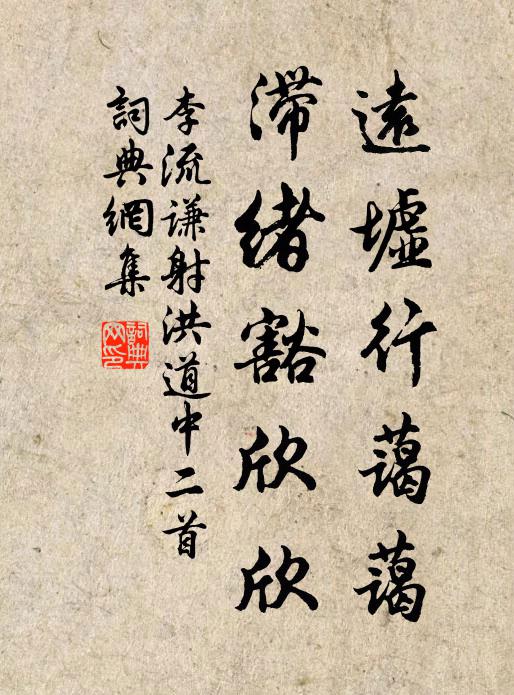 遠墟行藹藹
滯緒豁欣欣
李流謙射洪道中二首
詞典網集
詞典网印